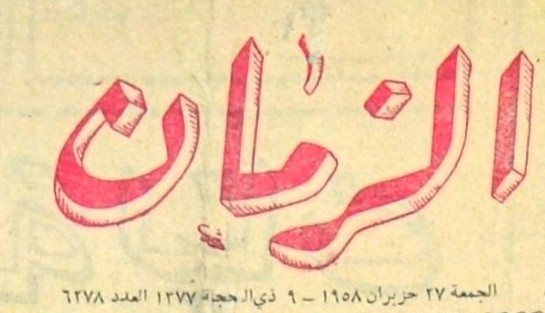 الزمان
الجمعة ٢٧ حزيران ١٩٥٨ - ٩ ذي الحجة ١٣٧٧ العدد ٦٢٧٨